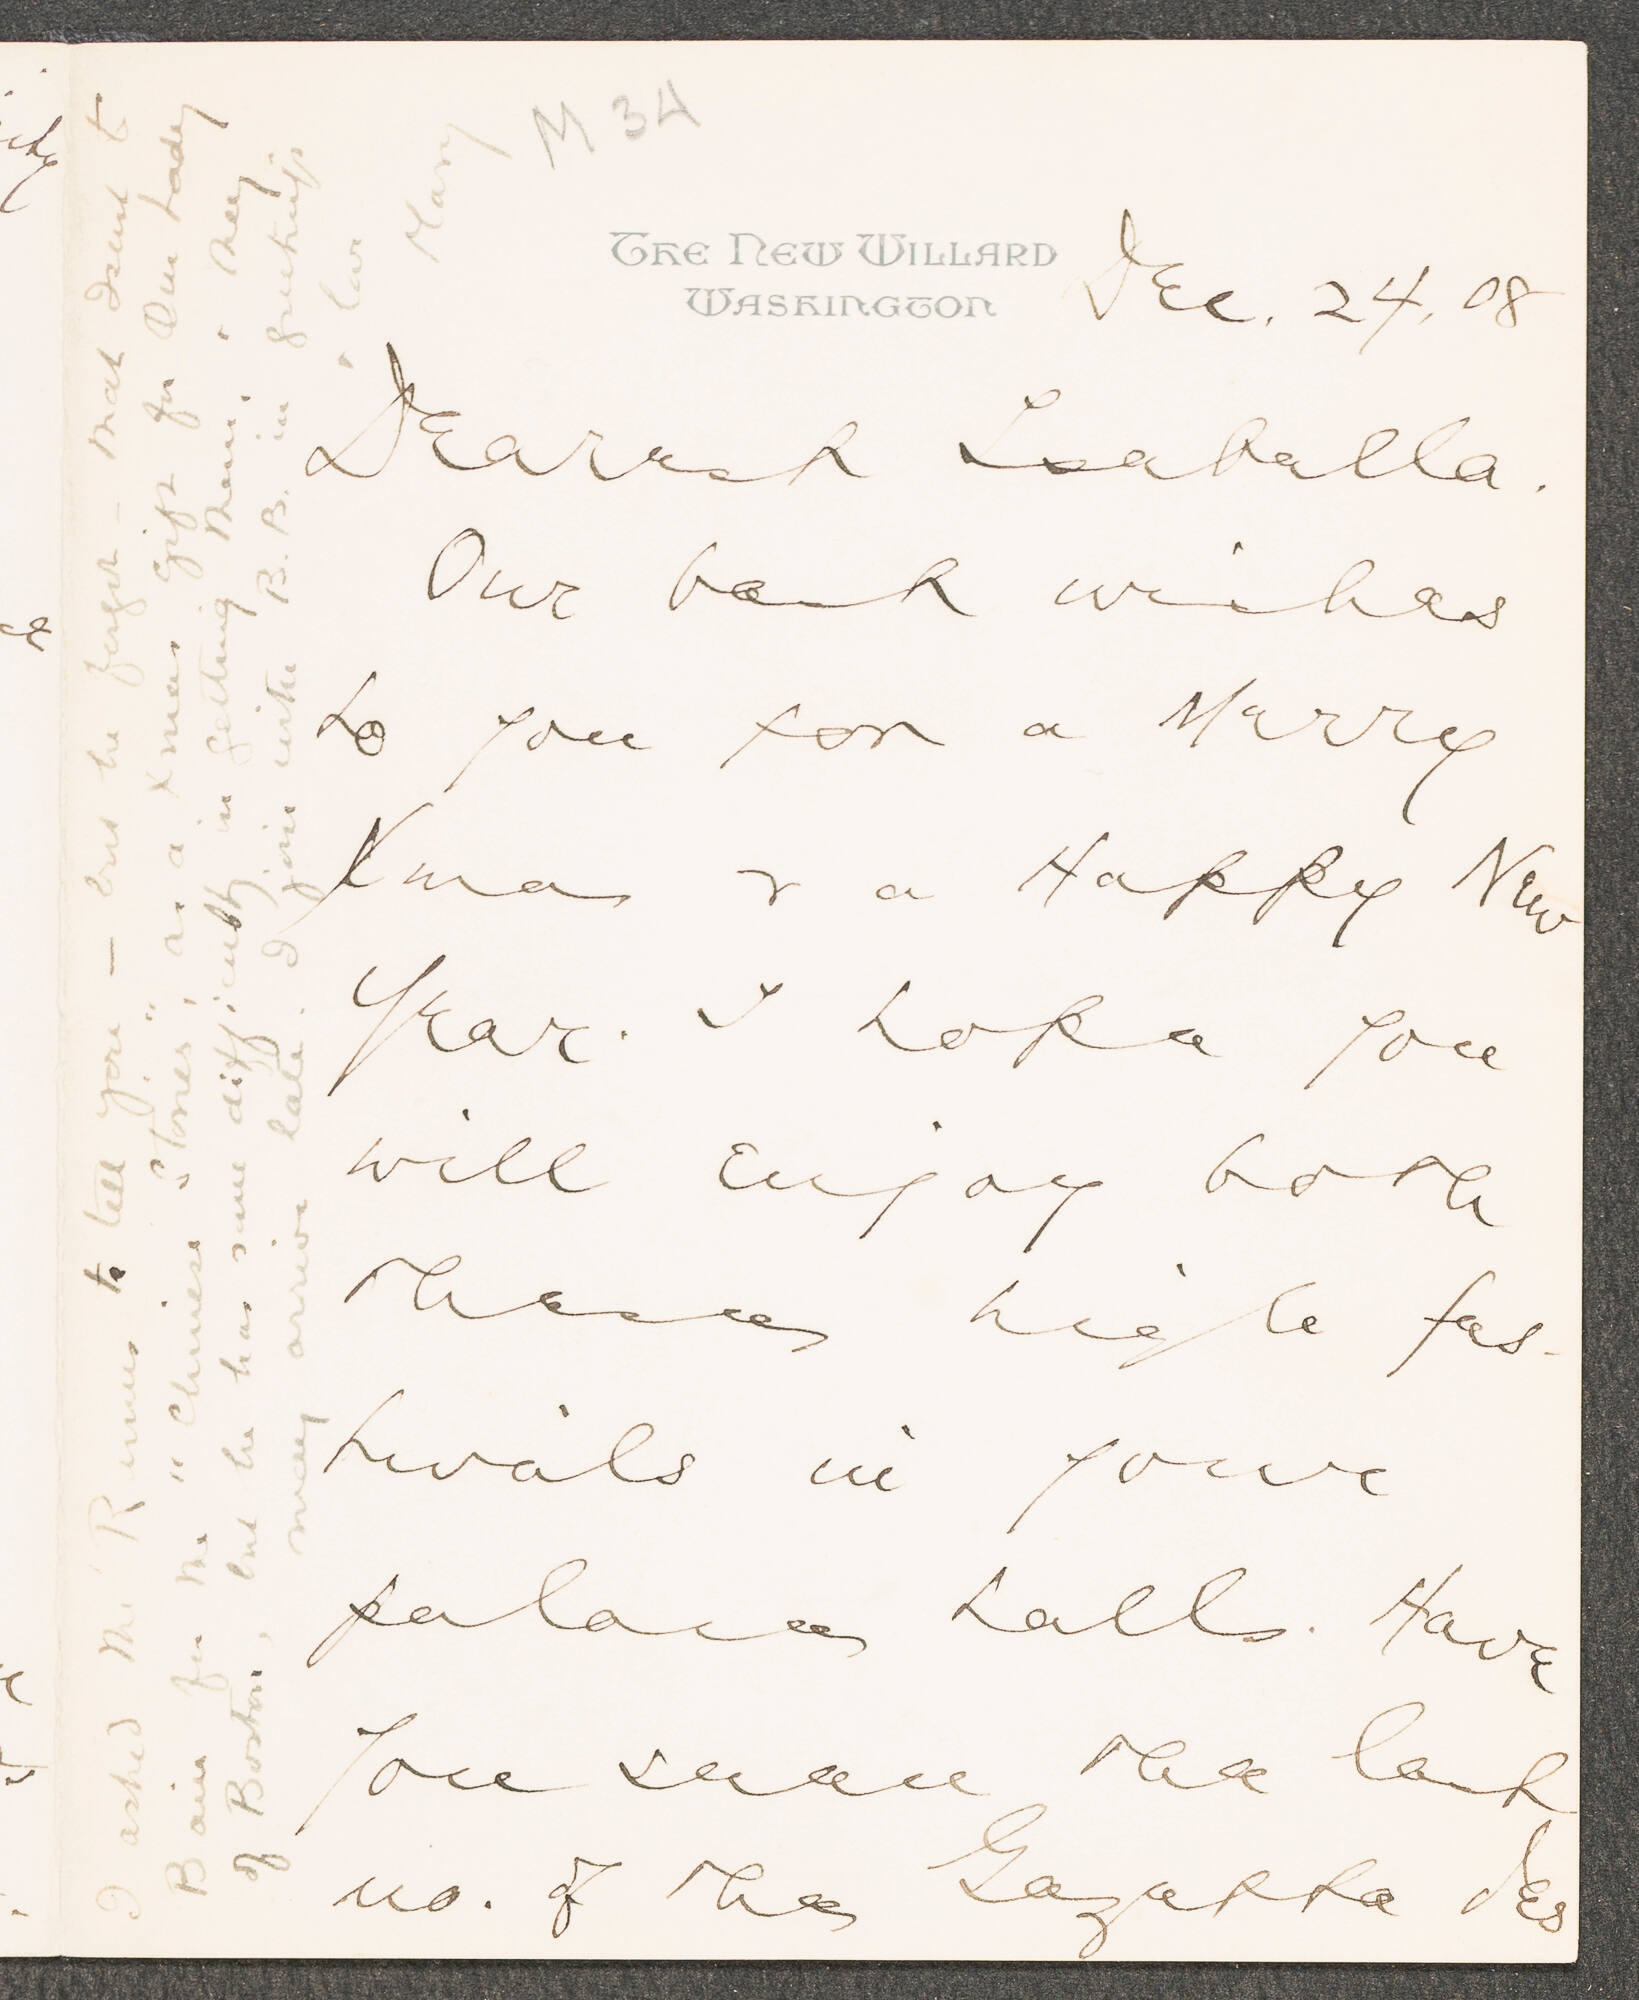 M 34
THE NEW WILLARD
WASHINGTON
Dec. 24, 08
Dearest Isabella.
Our best wishes
to you for a Merry
Xmas & a Happy New
Year. I hope you
will enjoy both
these high fes-
tivals in your
palace halls. Have
you seen the last
no. of the Gazette des
I asked the Remus to tell you — but he forgot — that I sent to
Bain for the "Chinese Stones," as a Xmas gift for Our Lady
of Boston, but he has some difficulty in getting them, & they
may arrive late. I join with B.B. in greetings
& love
Mary